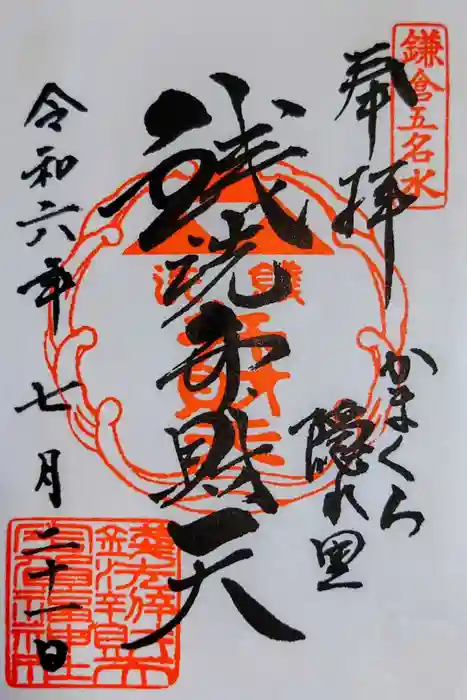 鎌倉五名水
奉拝
かまくら
隠れ里
銭洗弁財天
令和六年
七月二十一日